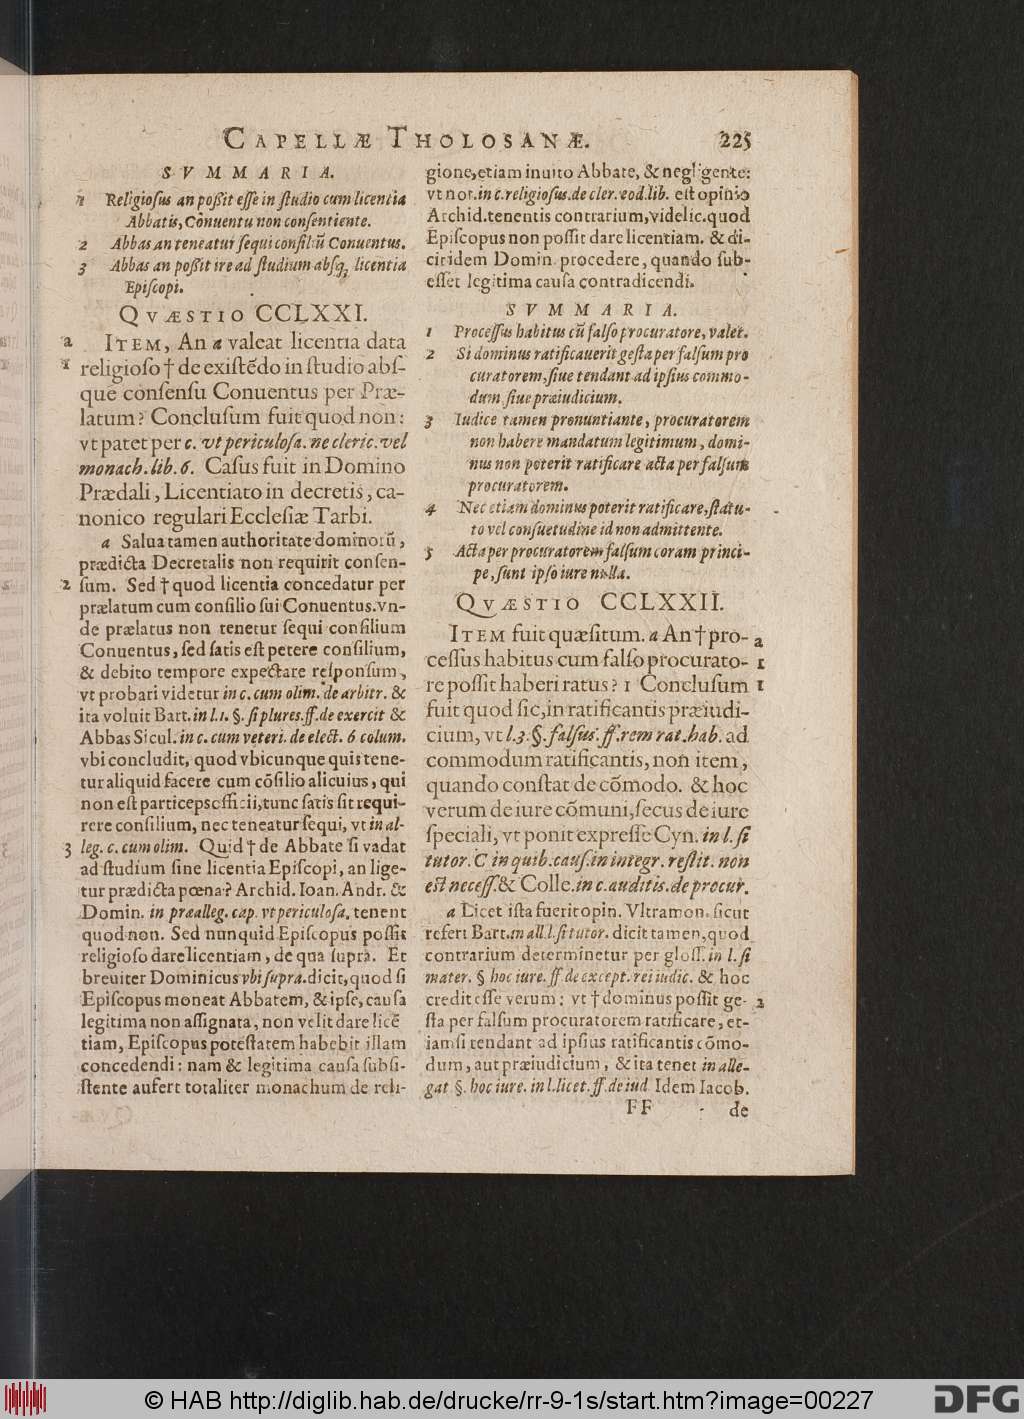 CAPELLÆ THOLOSANÆ. 225
SVMMARIA.
1 Religiosus an poßit esse in studio cum licentia
Abbatis, Conuentu non consentiente.
2 Abbas an teneatur sequi consiliũ Conuentus.
3 Abbas an poßit ire ad studium absq; licentia
Episcopi.
QVÆSTIO CCLXXI.
a ITEM, An a valeat licentia data
1 religioso † de existẽdo in studio abs-
que consensu Conuentus per Præ-
latum? Conclusum fuit quod non:
vt patet per c. vt periculosa. ne cleric. vel
monach. lib. 6. Casus fuit in Domino
Prædali, Licentiato in decretis, ca-
nonico regulari Ecclesiæ Tarbi.
a Salua tamen authoritate dominorũ,
prædicta Decretalis non requirit consen-
2 sum. Sed † quod licentia concedatur per
prælatum cum consilio sui Conuentus. vn-
de prælatus non tenetur sequi consilium
Conuentus, sed satis est petere consilium,
& debito tempore expectare responsum,
vt probari videtur in c. cum olim. de arbitr. &
ita voluit Bart. in l.1. §. si plures. ff. de exercit &
Abbas Sicul. in c. cum veteri. de elect. 6 colum.
vbi concludit, quod vbicunque quis tene-
tur aliquid facere cum cõsilio alicuius, qui
non est particeps officii, tunc satis sit requi-
rere consilium, nec teneatur sequi, vt in al-
3 leg. c. cum olim. Quid † de Abbate si vadat
ad studium sine licentia Episcopi, an lige-
tur prædicta pœna? Archid. Ioan. Andr. &
Domin. in præalleg. cap. vt periculosa. tenent
quod non. Sed nunquid Episcopus possit
religioso dare licentiam, de qua supra. Et
breuiter Dominicus vbi supra. dicit, quod si
Episcopus moneat Abbatem, & ipse, causa
legitima non assignata, non velit dare licẽ
tiam, Episcopus potestatem habebit illam
concedendi: nam & legitima causa subsi-
stente aufert totaliter monachum de reli-
gione, etiam inuito Abbate, & negligente:
vt not. in c. religiosus. de cler. eod. lib. est opinio
Archid. tenentis contrarium, videlic. quod
Episcopus non possit dare licentiam. & di-
cit idem Domin. procedere, quando sub-
esset legitima causa contradicendi.
SVMMARIA.
1 Processus habitus cũ falso procuratore, valet.
2 Si dominus ratificauerit gesta per falsum pro
curatorem, siue tendant ad ipsius commo-
dum siue præiudicium.
3 Iudice tamen pronuntiante, procuratorem
non habere mandatum legitimum, domi-
nus non poterit ratificare acta per falsum
procuratorem.
4 Nec etiam dominus poterit ratificare, statu-
to vel consuetudine id non admittente.
5 Acta per procuratorem falsum coram princi-
pe, sunt ipso iure nulla.
QVÆSTIO CCLXXII.
ITEM fuit quæsitum. a An † pro- a
cessus habitus cum falso procurato- 1
re possit haberi ratus? 1 Conclusum 1
fuit quod sic, in ratificantis præiudi-
cium, vt l.3. §. falsus. ff. rem rat. hab. ad
commodum ratificantis, non item,
quando constat de cõmodo. & hoc
verum de iure cõmuni, secus de iure
speciali, vt ponit expresse Cyn. in l. si
tutor. C in quib. caus. in integr. restit. non
est necess. & Colle. in c. auditis. de procur.
a Licet ista fuerit opin. Vltramon. sicut
refert Bart. in all. l. si tutor. dicit tamen, quod
contrarium determinetur per gloss. in l. si
mater. § hoc iure. ff. de except. rei iudic. & hoc
credit esse verum: vt † dominus possit ge- 2
sta per falsum procuratorem ratificare, et-
iamsi tendant ad ipsius ratificantis cõmo-
dum, aut præiudicium, & ita tenet in alle-
gat §. hoc iure. in l. licet. ff. de iud Idem Iacob.
FF de
© HAB http://diglib.hab.de/drucke/rr-9-1s/start.htm?image=00227
DFG